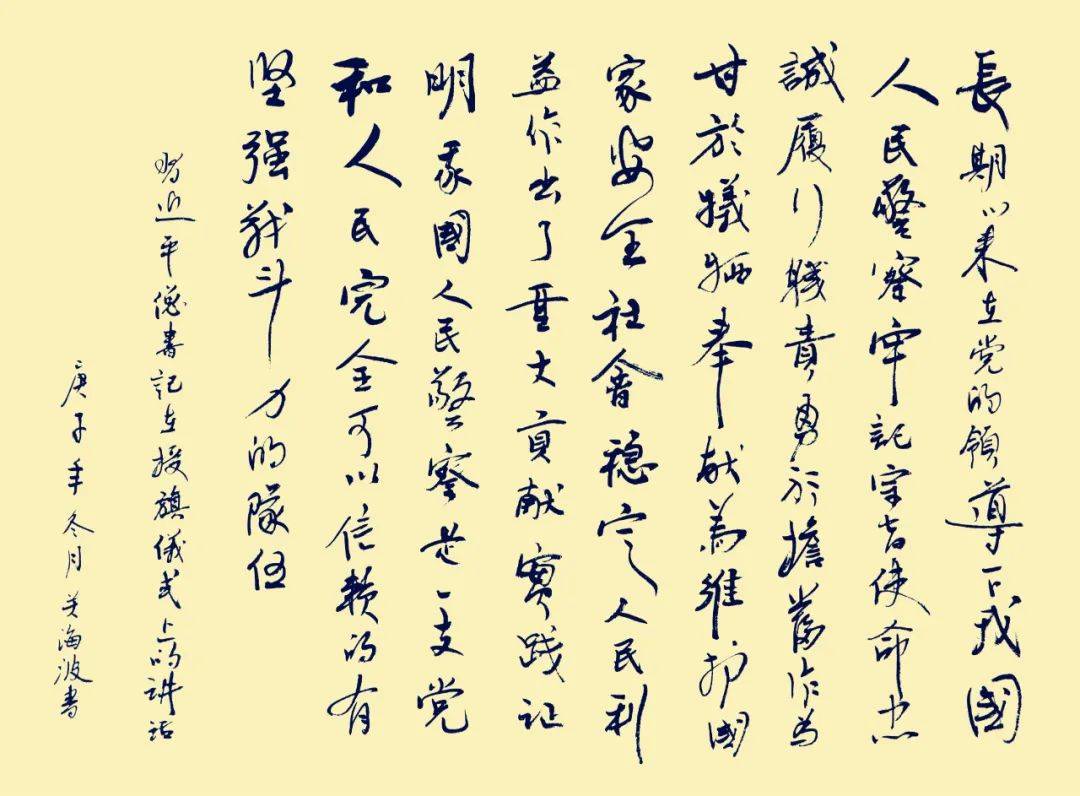 長期以来在党的領導下我國
人民警察牢記宗旨使命忠
誠履行職責勇於擔當作为
甘於犠牲奉献為維护國
家安全社會穏定人民利
益作出了重大貢献實践证
明我國人民警察是一支党
和人民完全可以信赖的有
坚强战斗力的隊伍
習近平總書記在授旗儀式上的讲话
庚子年冬月关海波書